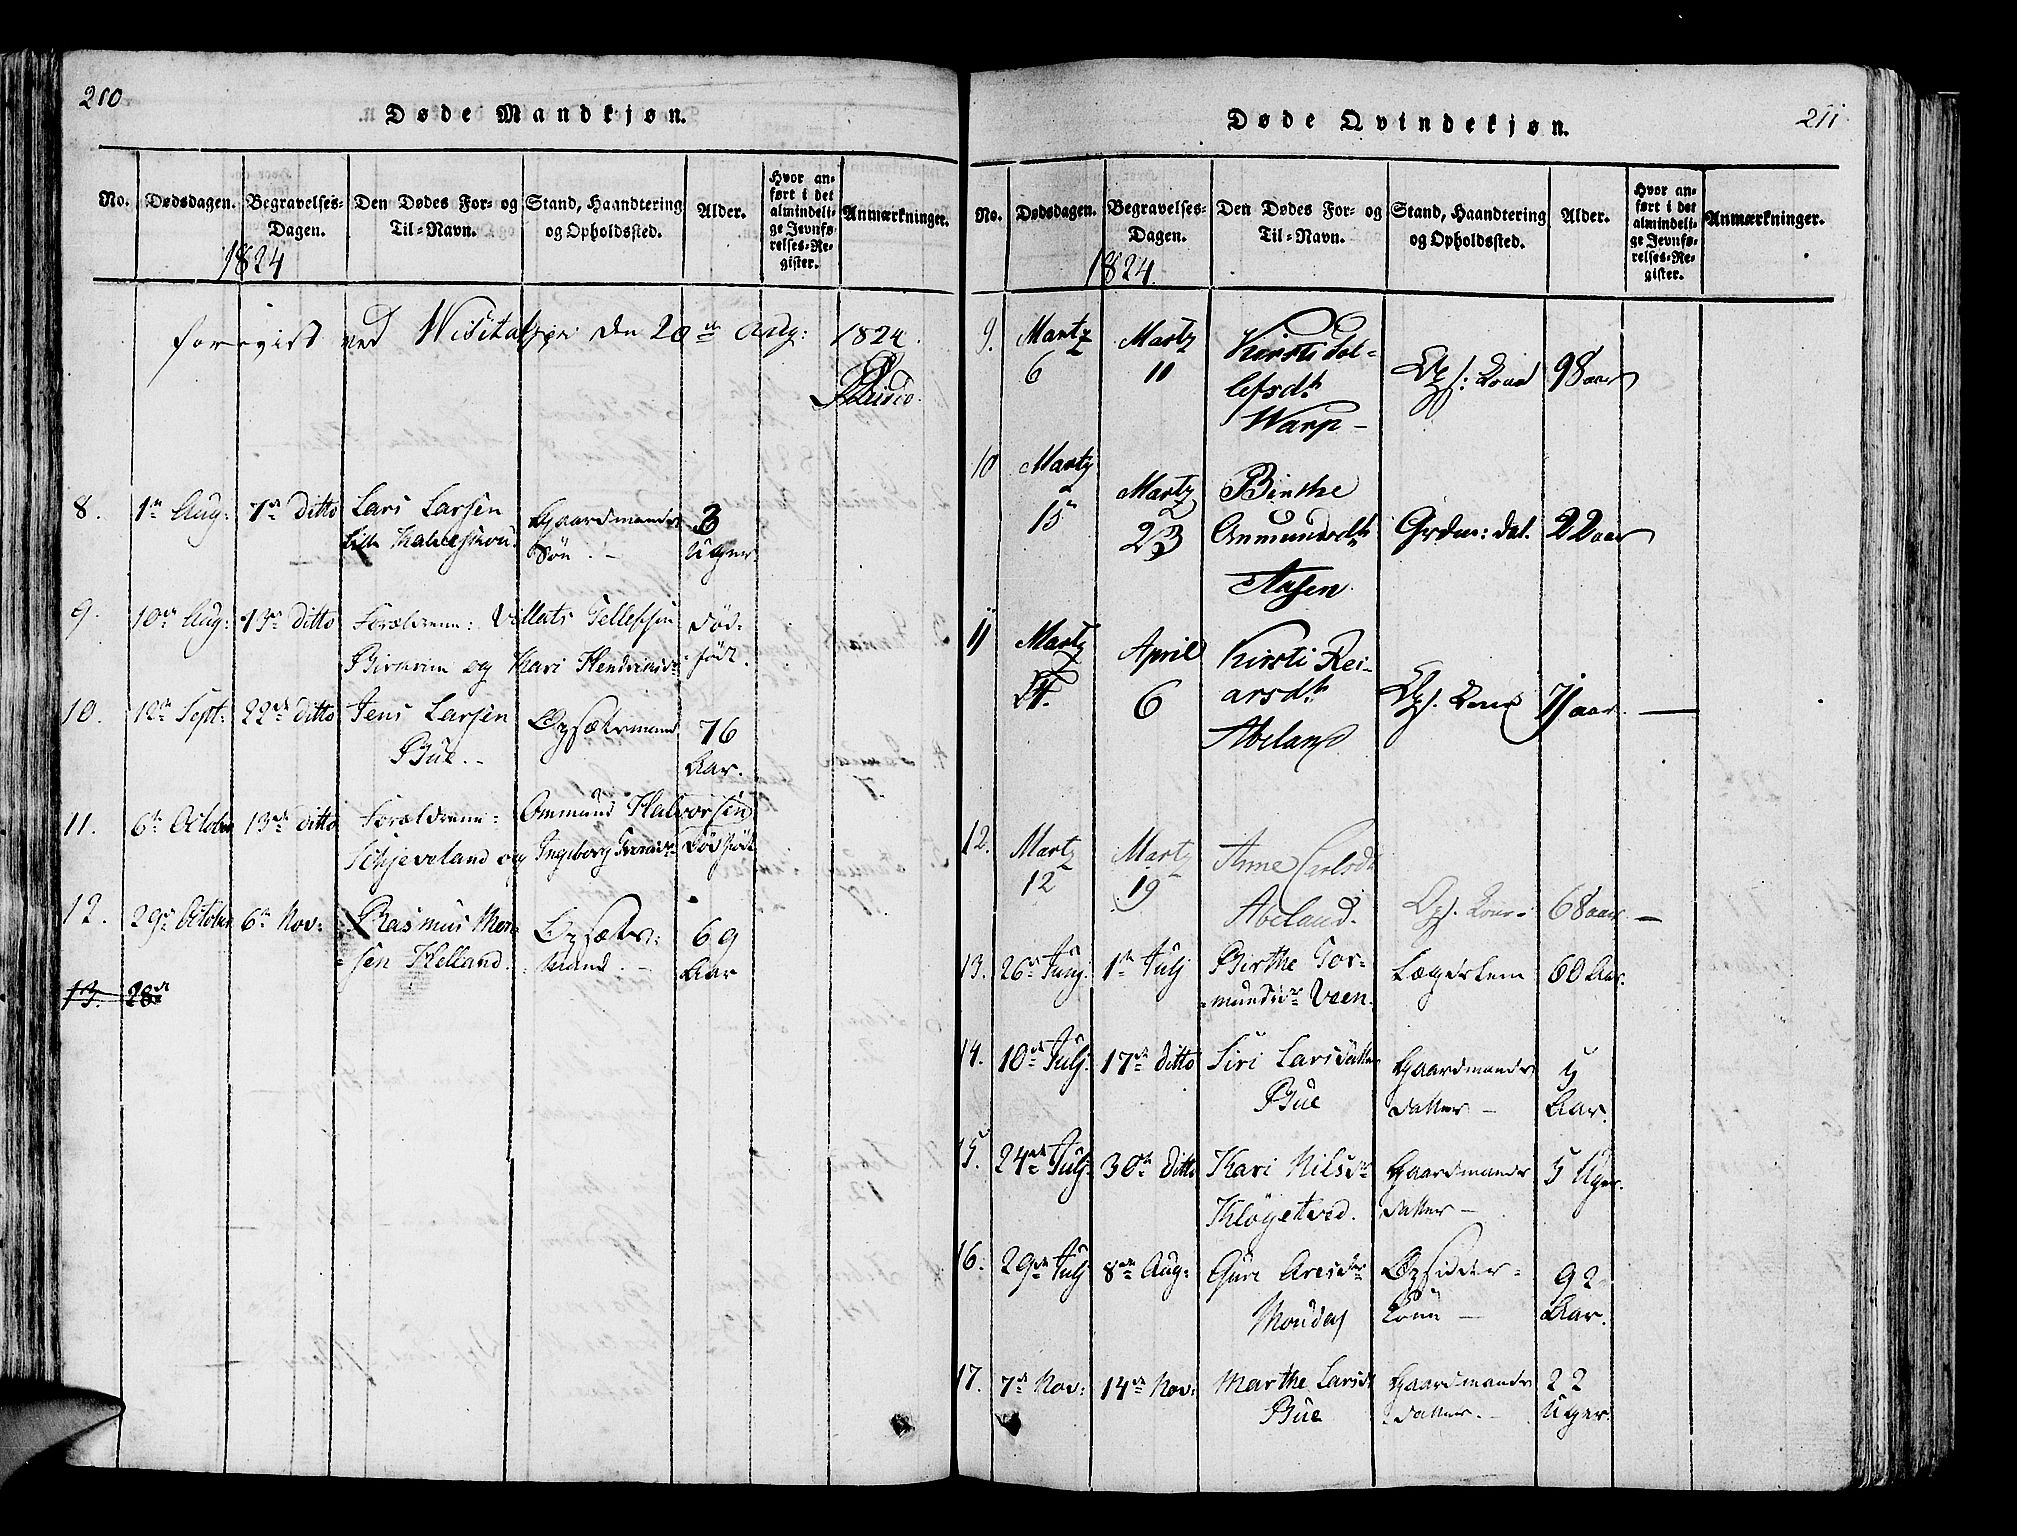 210
Døde Mandkjøn.
No. Dødsdagen. Begravelses-Dagen. Den Dødes For- og Til-Navn. Stand, Haandtering og Opholdssted. Alder. Hvor anført i det almindelige Jevnførelses-Register. Anmærkninger.
1824
forevist ved den 20 Aug: 1824
8. 1te Aug: 7de ditto Lars Larsen Gaardmands 3
Lille Søn. - Uger
9. 10de Aug: 13de ditto Forældrene: Tellefsen Død-
Birkrim og Kari født.
10. 12te Sept: 22de ditto Jens Larsen 76
Bue. - Aar.
11. 6te October 13de ditto Forældrene: Ommund Halvorsen
Schjeveland og Ingeborg Dødfødt
12. 29de October 6te Nov: Rasmus 69
sen Helland. mand. - Aar
13. 28de
211
Døde Qvindekjøn.
No. Dødsdagen. Begravelses-Dagen. Den Dødes For- og Til-Navn. Stand, Haandtering og Opholdssted. Alder. Hvor anført i det almindelige Jevnførelses-Register. Anmærkninger.
1824.
9. Martz 6 Martz 11 Kirsti Tol-
lefsdt. 98 aar
Warp -
10 Martz 15 Martz 23 Birthe
Anmundsdt. Grdm: dat. 22 aar
Aasen
11 Martz April 6 Kirsti Rei-
arsdt. 71 aar. -
Abeland
12. Martz 12 Martz 19 Anne Carlsdt
Abeland. 68 aar -
13. 26de Juny. 1te Julj Birthe Tor- Lægdslem 60 Aar.
mundsdr. Veen.
14. 10de Julj. 17de ditto Siri Larsdatter Gaardmands 5
Bue datter - Aar.
15. 24de Julj. 30te ditto Kari Nilsdr Gaardmands 5 Uger.
Kløgetved. datter -
16. 29de Julj 8de Aug: Guri 92
- Aar.
17. 7de Nov: 14de Nov: Marthe Larsdr Gaardmands 22
Bue datter. - Uger.